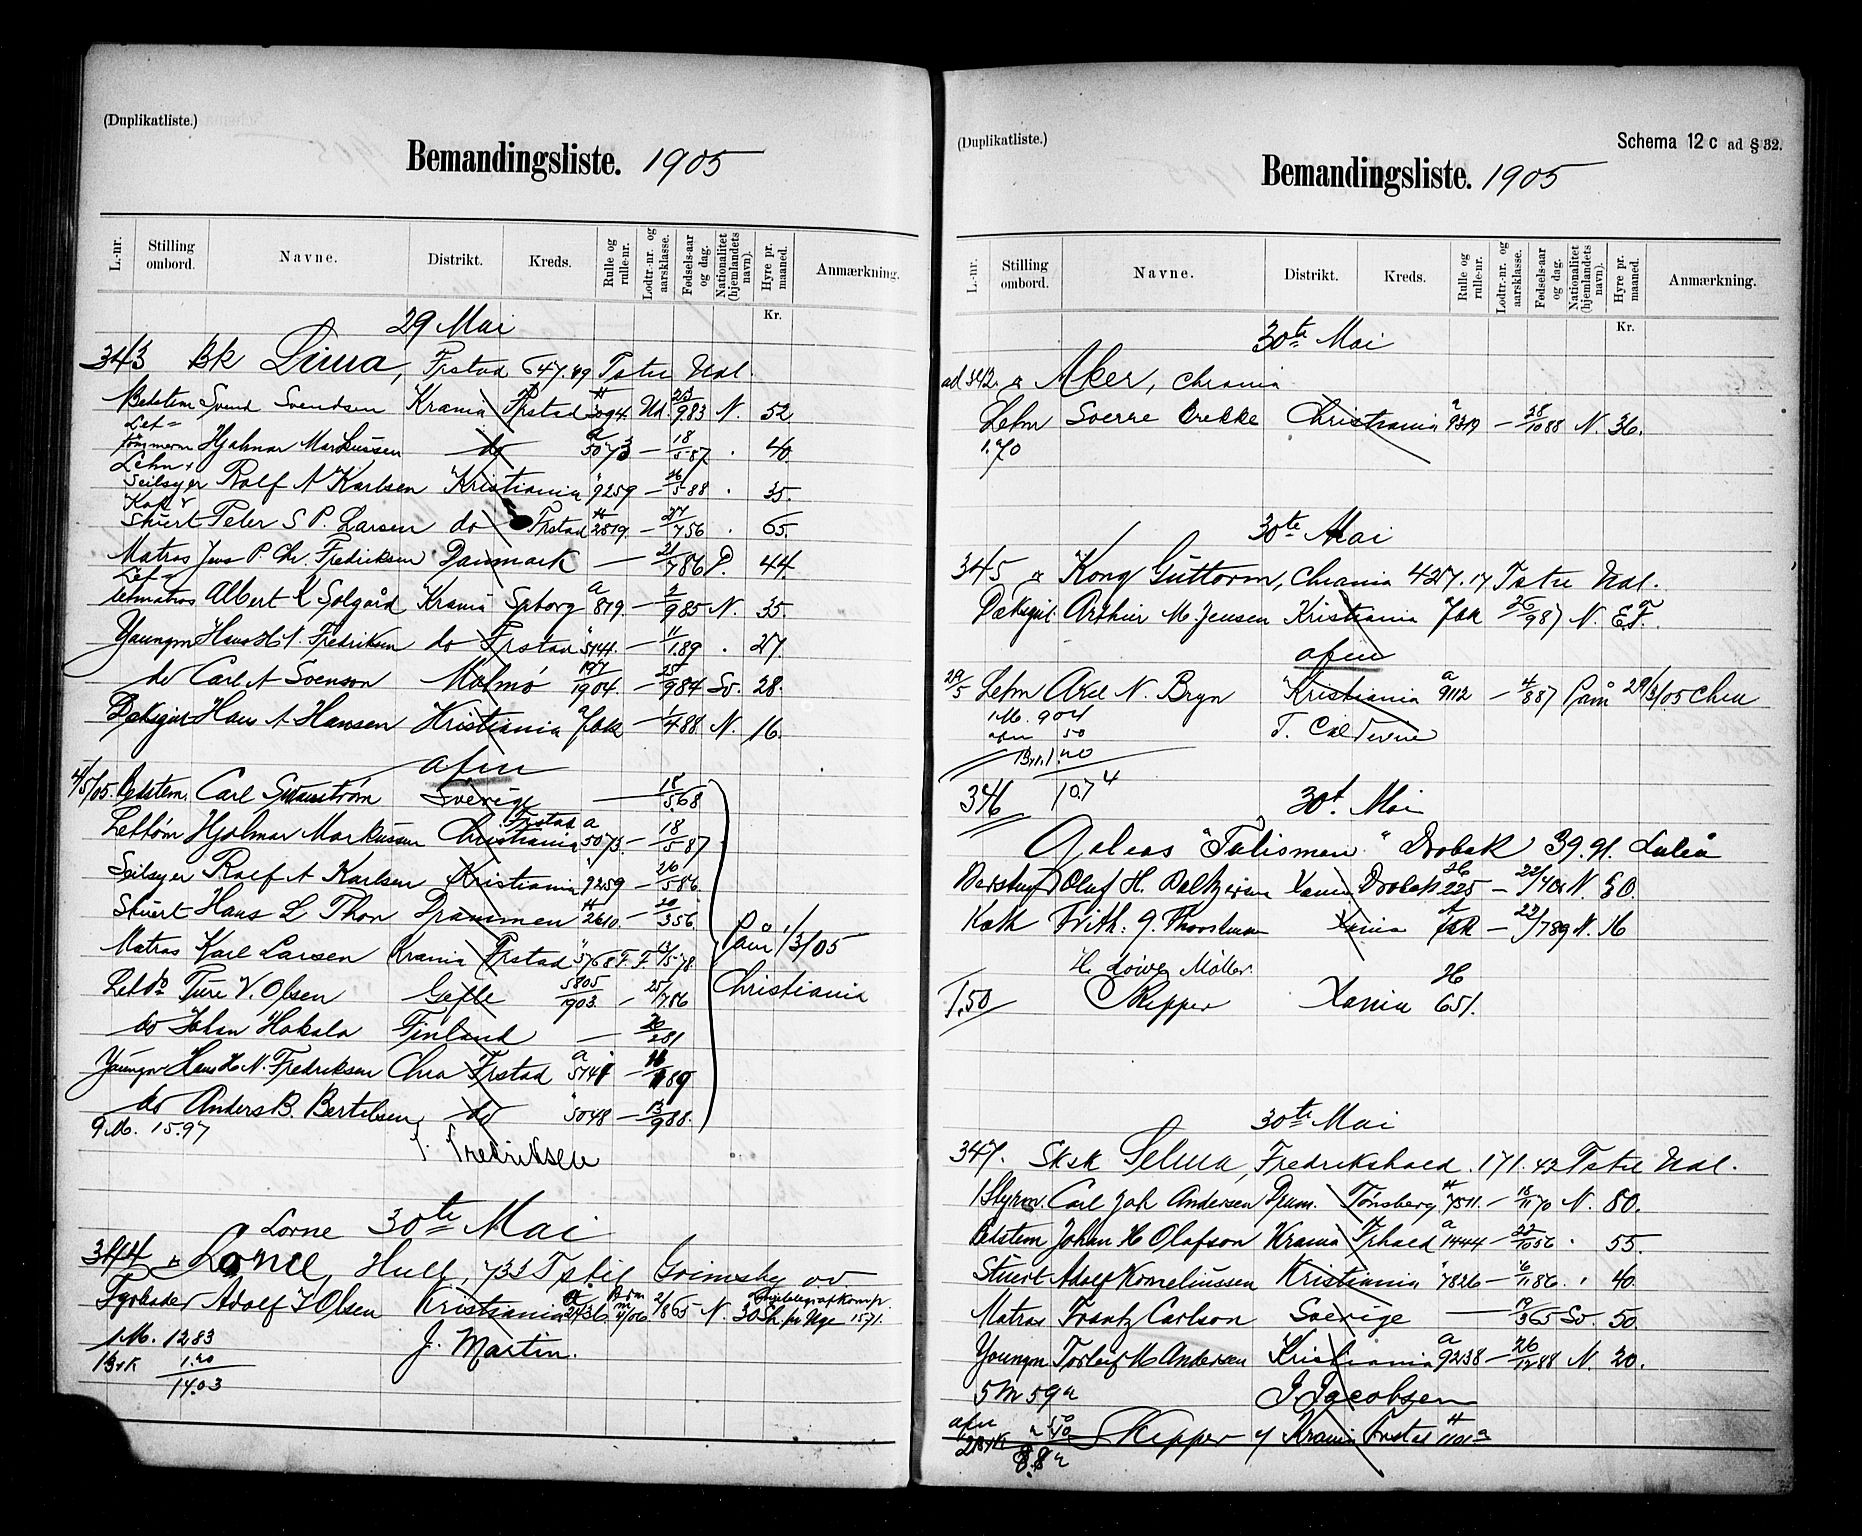 (Duplikatliste.)
Bemandingsliste. 1905
L.-nr. Stilling ombord. Navne. Distrikt. Kreds. Rulle og rulle-nr. Lodtr.-nr. og aarsklasse. Fødsels-aar og dag. Nationalitet (hjemlandets navn). Hyre pr. maaned. Anmærkning.
Kr.
29 Mai
343 Bk Lima, Frstad 647.49 Tstu Ual.
Bedstem Svend Svendsen Krania Frstad 3094. Ud. 23/9 83 N. 52.
Hjalmar Markussen do a 5073 — 18/5 87 . 40.
Seilsyer Rolf A Karlsen Kristiania " 9259 — 26/5 88 . 35.
Kok & Stuert Peter S P. Larsen do Frstad 2819 — 27/7 56 . 65.
Matros Jens P. Chr. Fredriksen Danmark — 21/7 86 44.
Letmatros Albert K Solgård Krania Spborg a 819 — 2/9 85 N. 35.
Youngm Hans H N. Fredriksen do Frstad " 5141 — 11/1 89 . 27.
do Carl A Svenson Malmö 197/1904. — 25/9 84 Sv. 28.
Dæksgut Hans A Hansen Kristiania — 1/4 88 N. 16.
afm
4/5/05. Bedstem. Carl Sverige — 18/5 68
Hjalmar Markussen Christiania Frstad a 5073. — 18/5 87
Seilsyer Rolf A Karlsen Kristiania 9259 — 26/5 86.
Stuert Hans L Thon Drammen 2610. — 20/3 56.
Matros Karl Larsen Krania Frstad " 5768 F. F. 78
Ture V. Olsen Gefle 5805/1903. — 25/7 86
do Johan Hakala Finland — 20/2 81
Youngm Hans H N. Fredriksen Chra Frstad a 5141 — 11/1 89
do Anders B. Bertelsen do " 5048 — 13/9 88.
Påm 1/3/05
Christiania
9 M. 15.97
Fredriksen
Lorne 30te Mai
344 Lorne, Hull, Grimsby
Fyrbøder Adolf Olsen Kristiania a 2436 2/8 65 N. 30 Sh. pr Uge 1571.
1 M. 12.83 J. Martin.
1 Brk 1.20
14.03
(Duplikatliste.) Schema 12 c ad § 32.
Bemandingsliste. 1905
L.-nr. Stilling ombord. Navne. Distrikt. Kreds. Rulle og rulle-nr. Lodtr.-nr. og aarsklasse. Fødsels-aar og dag. Nationalitet (hjemlandets navn). Hyre pr. maaned. Anmærkning.
Kr.
30te Mai
ad 342. Aker, Chrania
Letm Sverre Brekke Christiania a 9319 — 28/10 88 N. 36.
1.70
30te Mai
345 Kong Guttorm, Chrania 427.17 Tstu Ual.
Dæksgut. Arthur M. Jensen Kristiania 26/9 87 N. E.F.
afm
29/5 Letm Axel N. Bryn Kristiania a 9112 — 4/8 87 Påm 29/3/05 Chra
1 M. 904
afm 50
Br. 1.20
10.74
346 30t. Mai
Galeas "Talisman" Drøbak 39.91. Luleå
Olaf H. Xania Drøbak 225 — 22/ N. 80.
Kok Frith. G. Thorstensen Xania — 22/7 89 N. 16
H. Møller.
1.50 Skipper Xania H 651.
30te Mai
347. Sksk Selma, Fredrikshald. 171.42 Tstu Ual.
1 Styrm. Carl Joh Andersen Dram. Tønsberg 7511. — 18/11 70 N. 80.
Bedstem Johan H Olafson Krania Frhald a 1444 — 22/10 56 . 55.
Stuert Adolf Korneliussen Kristiania " 7826 — 6/11 86. . 40.
Matros Frantz Carlson Sverige — 19/3 65 Sv 50.
Youngm Torleif M Andersen Kristiania a 9238 — 26/12 88 N. 20.
5 M 59 J. Jacobsen
afm 50
2 Brk 2.40 Skipper Krania Frstad